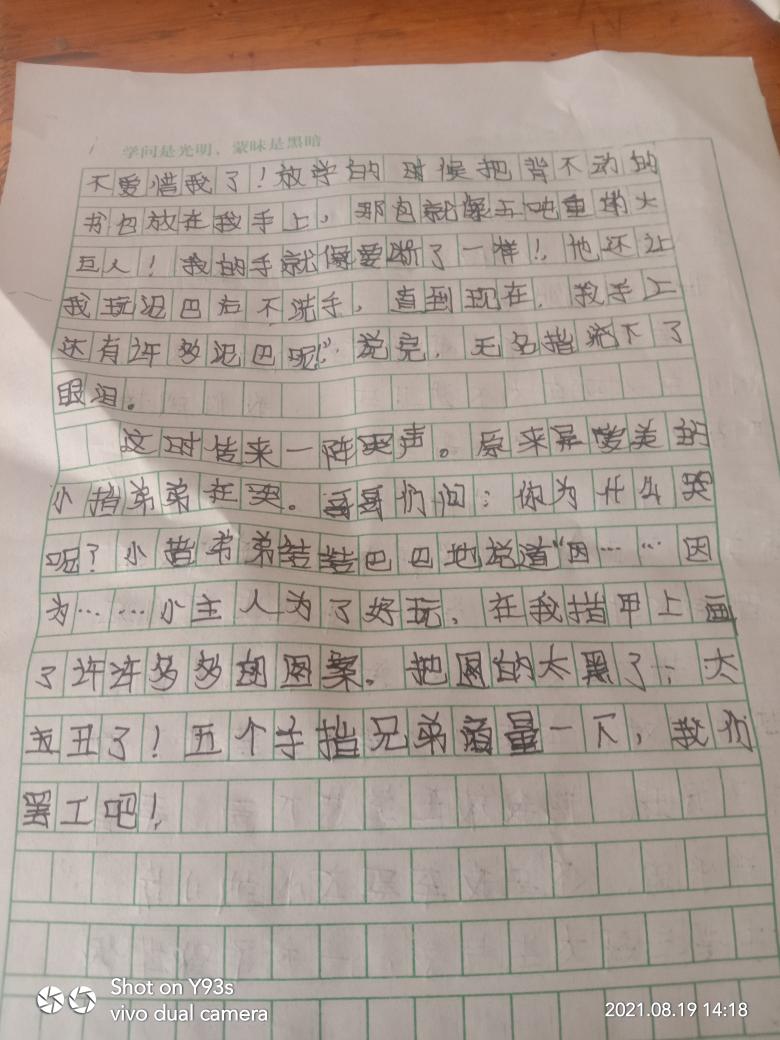 学问是光明、蒙昧是黑暗
不爱惜我了！放学的时候把背不动的
书包放在我手上，那包就像五吨重的大
巨人！我的手就像要断了一样！他还让
我玩泥巴后不洗手，直到现在，我手上
还有许多泥巴呢！”说完，无名指流下了
眼泪。
这时传来一阵哭声。原来是爱美的
小指弟弟在哭。哥哥们问：你为什么哭
呢？小指弟弟结结巴巴地说道“因……因
为……小主人为了好玩，在我指甲上画
了许许多多的图案。把图的太黑了；太
太丑了！五个手指兄弟商量一下，我们
罢工吧！
Shot on Y93s
vivo dual camera
2021.08.19 14:18